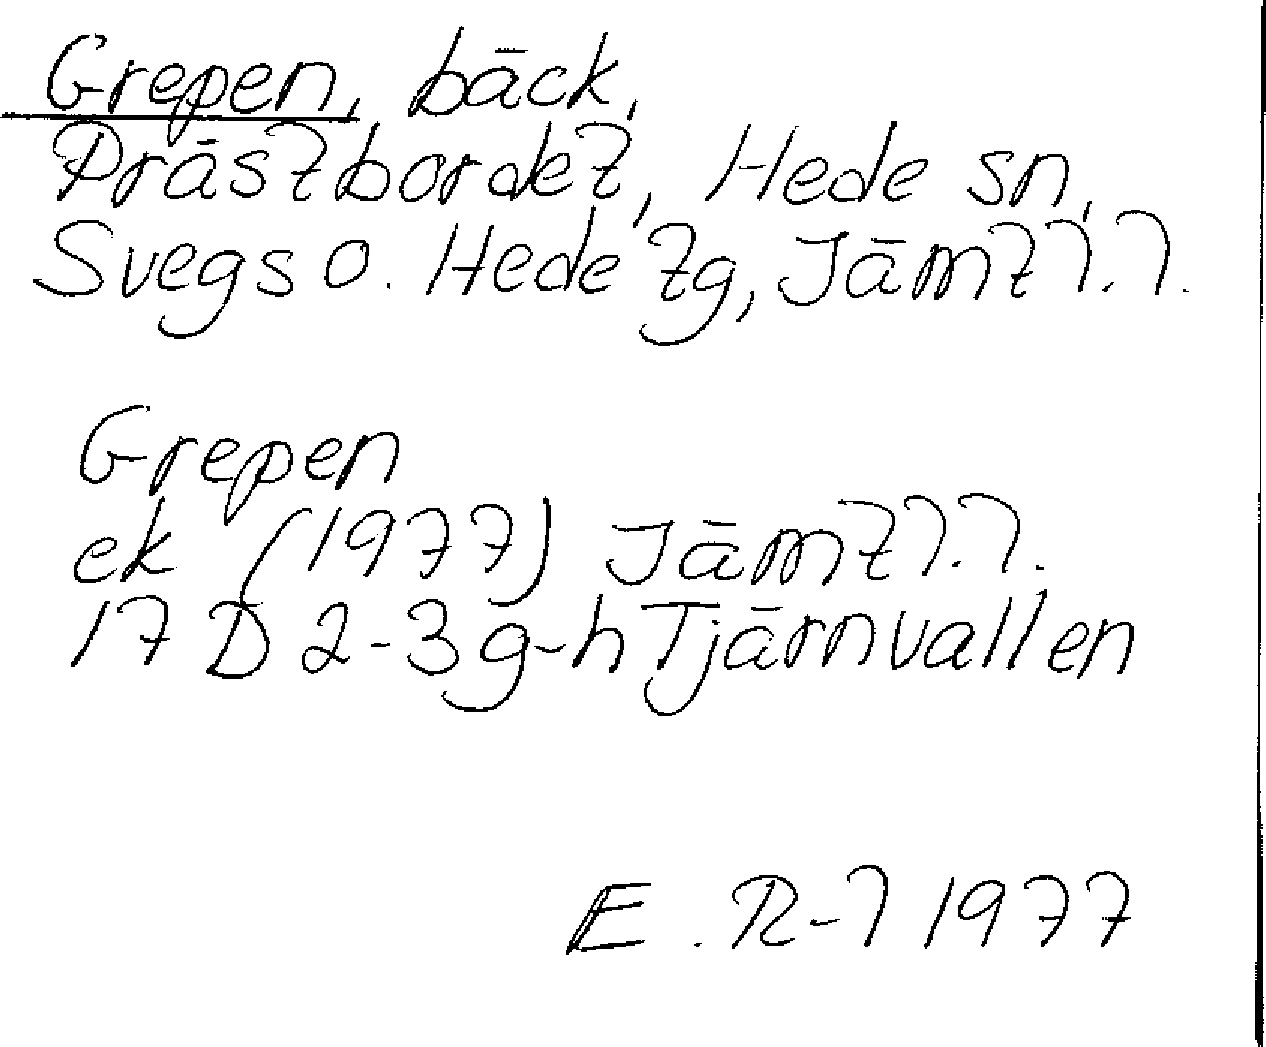 Grepen, bäck,
Prästbordet, Hede sn,
Svegs o. Hede tg, Jämtl.l.
Grepen
ek (1977) Jämtl.l.
17 D 2-3 g-h Tjärnvallen
E. R-l 1977